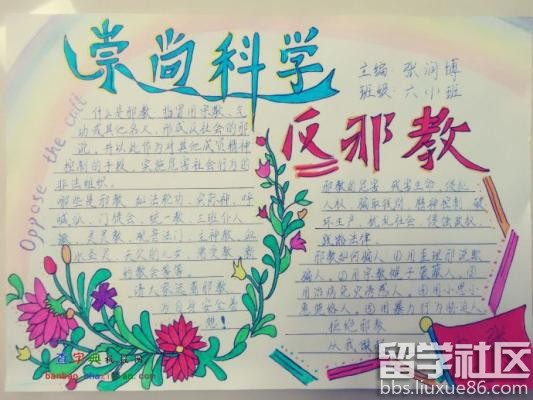 崇尚科学
主编：张润博
班级：六小班
反邪教
Oppose the cult
什么是邪教：指冒用宗教、气
动或其他名人，形成反社会的邪
说，并以此作为对其他成员精神
控制的手段，实施危害社会行为的
非法组织。
那些是邪教：如法轮功、实际神、呼
喊派、门徒会、统一教、三班仆人
派、灵灵教、观音法门、主神教、血
水圣灵
请大家远离邪教
为自身安全着
想！
邪教的危害：残害生命、侵犯
人权、骗取钱财、精神控制、破
坏生产、扰乱社会、侵蚀政权
践踏法律。
邪教如何骗人：①用歪理邪说欺
骗人。②用宗教幌子蒙蔽人。③
用治病免灾诱惑人。④用小恩小
惠笼络人。⑤用暴力行为胁迫人
拒绝邪教
从我做
留学社区
bbs.liuxue86.com